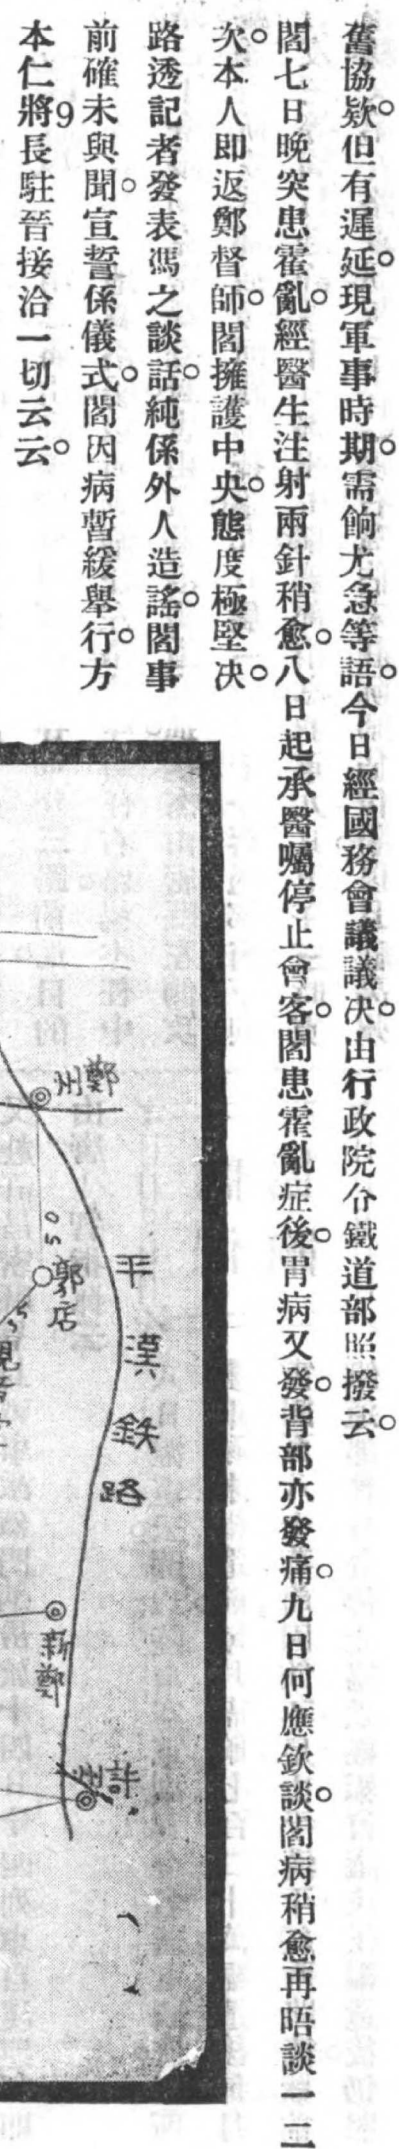 舊協欵。但有遲延。現軍事時期。需餉尤急等語。今日經國務會議議决。由行政院令鐵道部照撥云。
閻七日晚突患霍亂。經醫生注射兩針稍愈。八日起承醫囑停止會客。閻患霍亂症後。胃病又發。背部亦發痛。九日何應欽談。閻病稍愈再晤談一二
次。本人即返鄭督師。閻擁護中央。態度極堅决。
路透記者發表馮之談話。純係外人造謠。閻事
前確未與聞。宣誓係儀式。閻因病暫緩舉行。方
本仁將長駐晉接洽一切云云。
9
鄭州
50
郭店
35
平漢鉄路
新鄭
許州